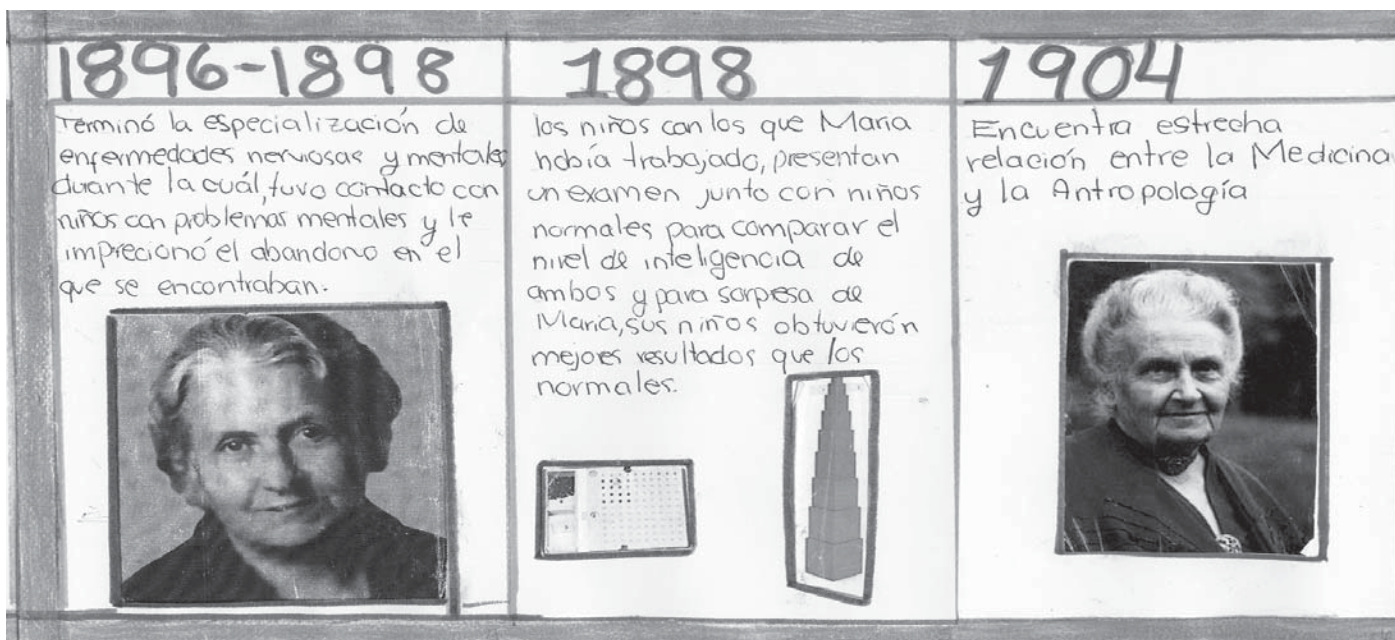 1896-1898
Terminó la especialización de
enfermedades nerviosas y mentales
durante la cuál, tuvo contacto con
niños con problemas mentales y le
impreciono el abandono en el
que se encontraban.
1898
los niños con los que Maria
había trabajado, presentan
un examen junto con niños
normales para comparar el
nivel de inteligencia de
ambos y para sorpresa de
Maria, sus niños obtuvierón
mejores resultados que los
normales.
1904
Encuentra estrecha
relación entre la Medicina
y la Antropología